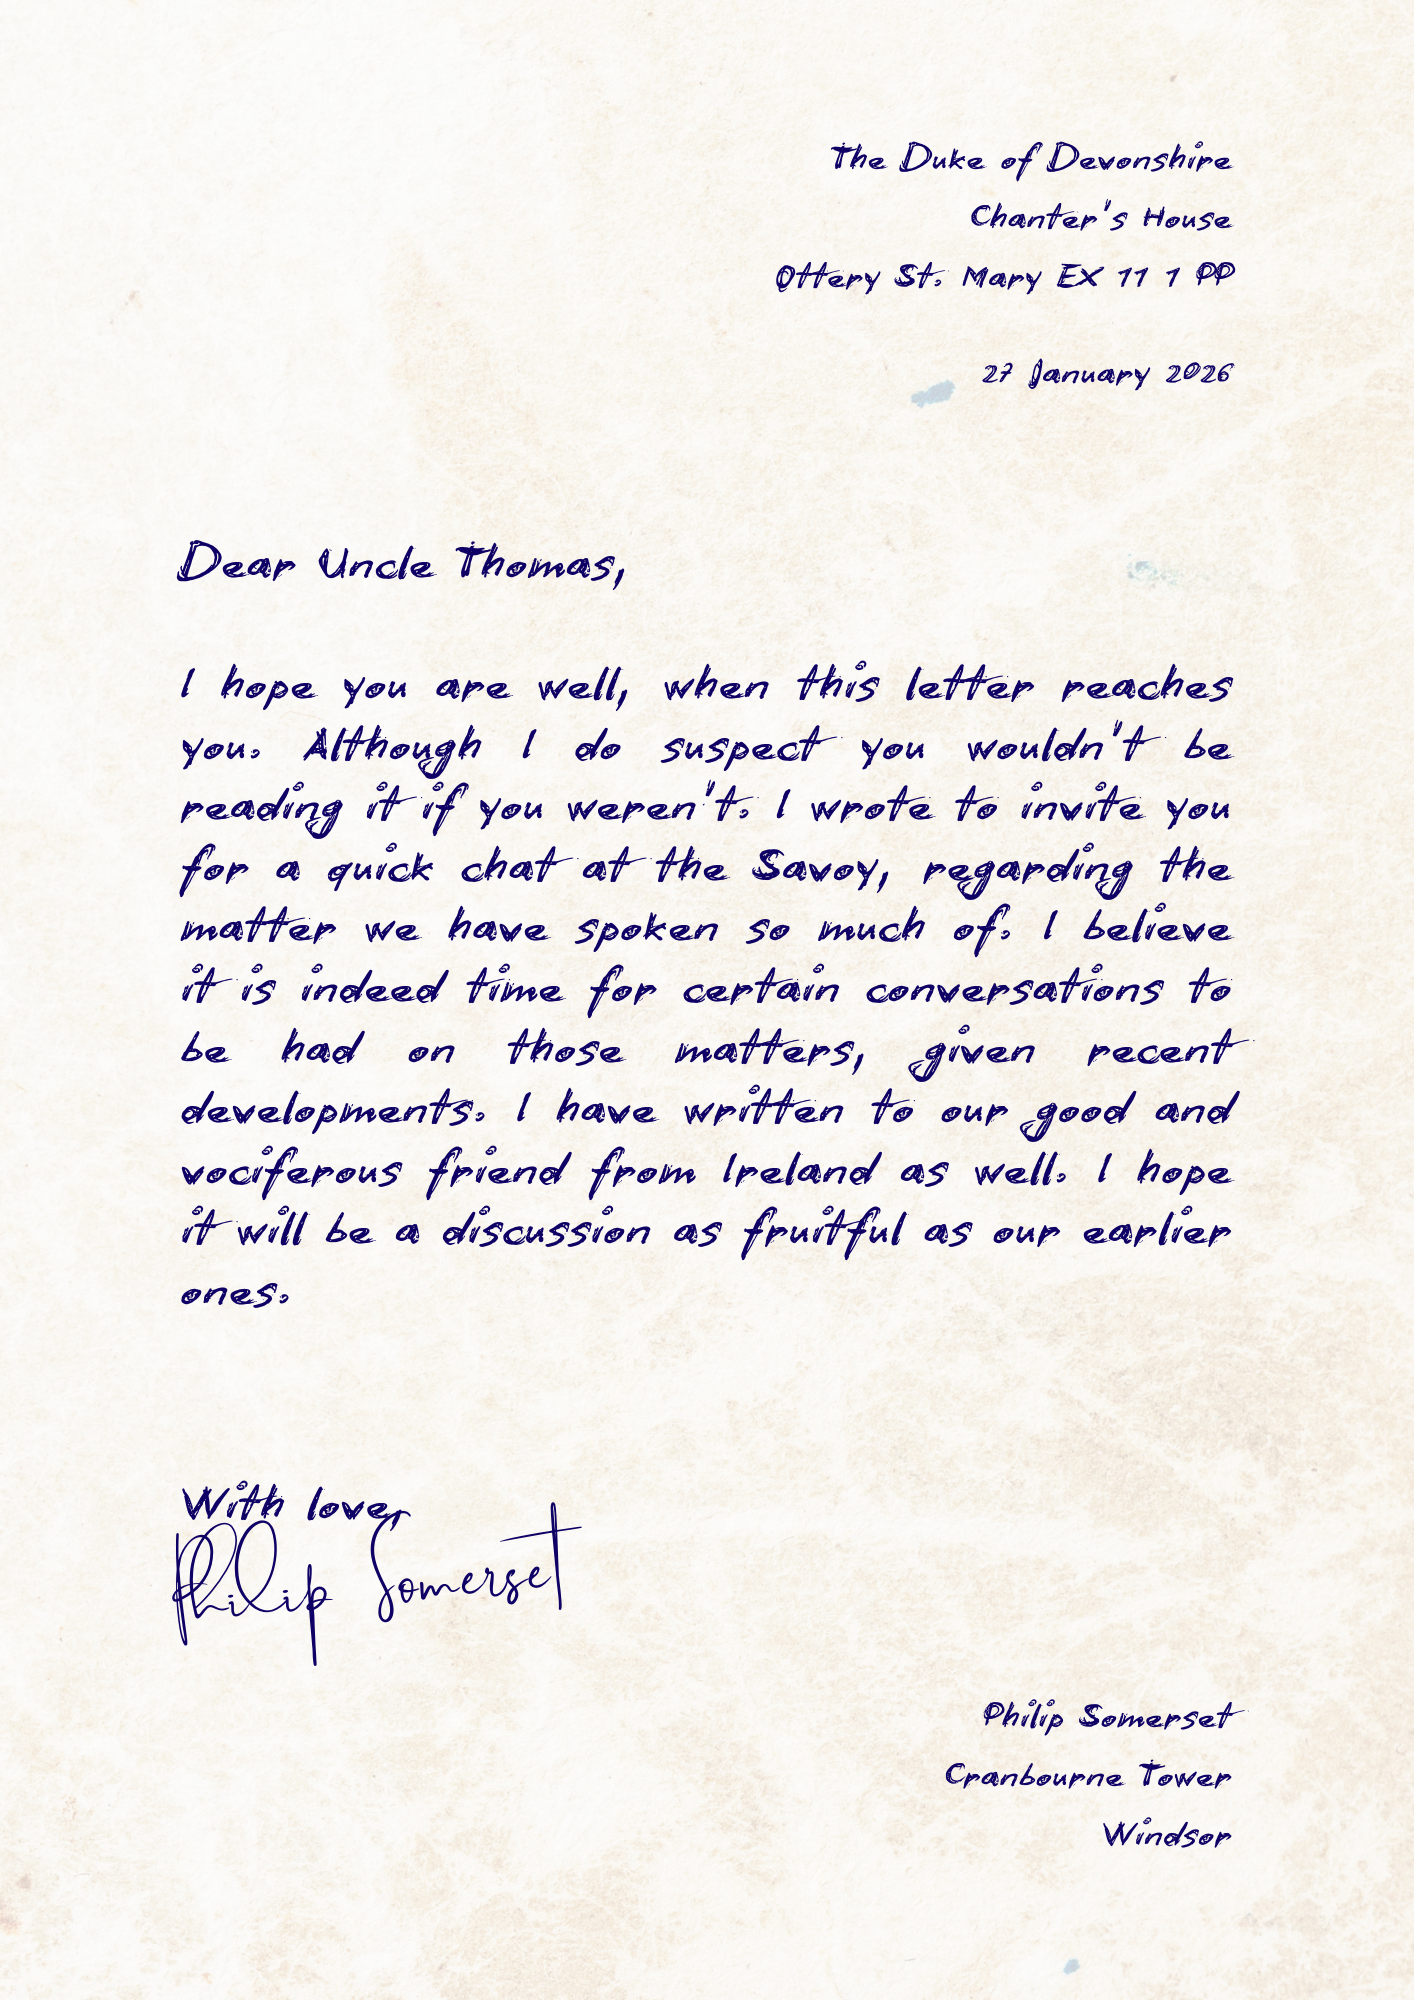 The Duke of Devonshire
Chanter's House
Ottery St. Mary EX 11 1 PP
27 January 2026
Dear Uncle Thomas,
I hope you are well, when this letter reaches
you. Although I do suspect you wouldn't be
reading it if you weren't. I wrote to invite you
for a quick chat at the Savoy, regarding the
matter we have spoken so much of. I believe
it is indeed time for certain conversations to
be had on those matters, given recent
developments. I have written to our good and
vociferous friend from Ireland as well. I hope
it will be a discussion as fruitful as our earlier
ones.
With love,
Philip Somerset
Philip Somerset
Cranbourne Tower
Windsor